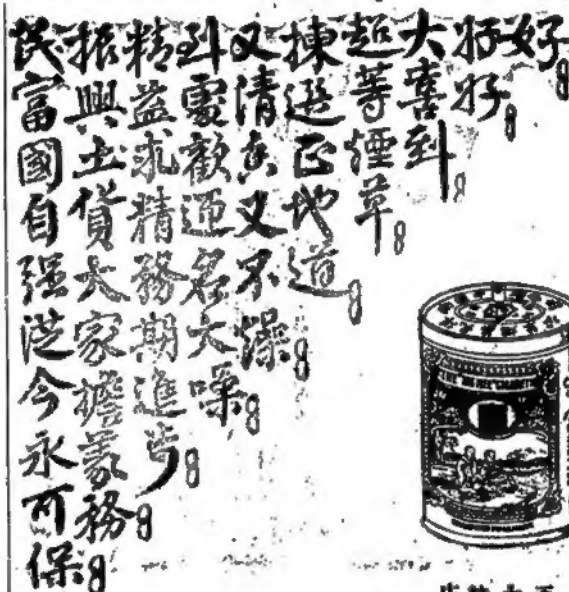 好
好好
大喜到
超等煙草
揀選正地道
又清香又不燥
到處歡迎名大噪
精益求精務期進步
振興土貨大家擔義務
民富國自強從今永可保